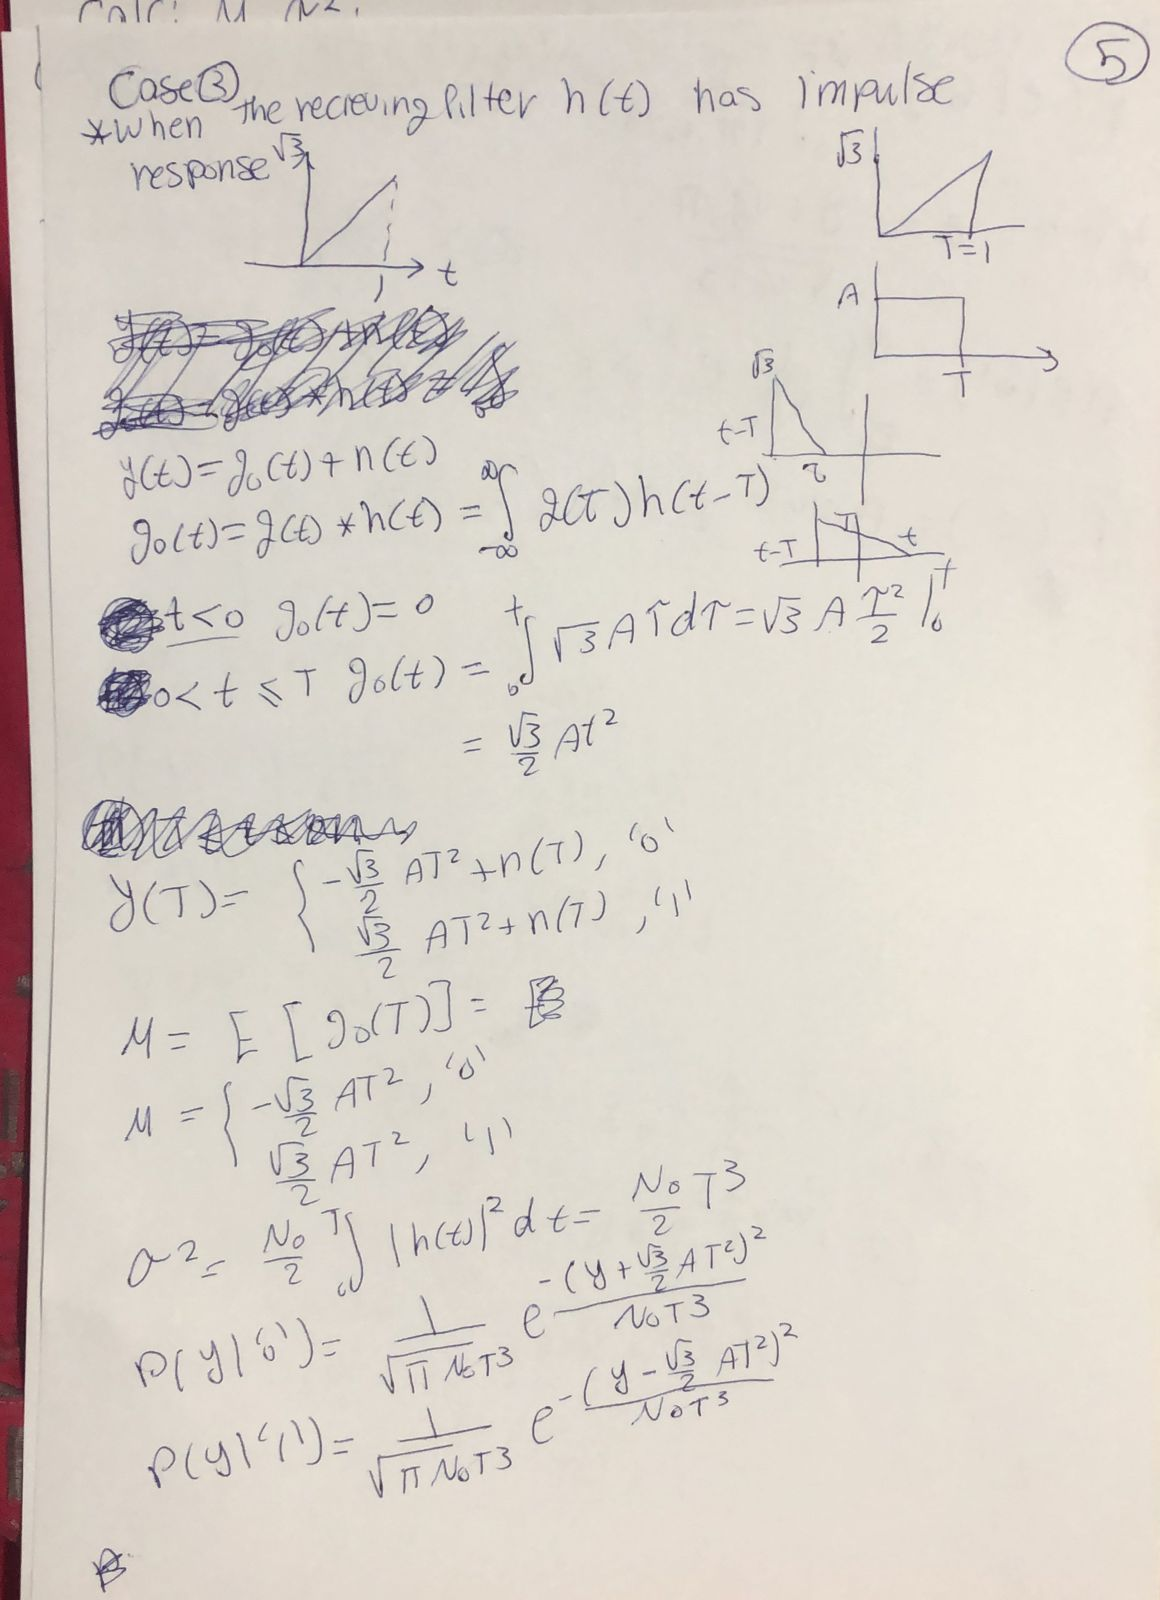 Calc: M
5
Case 3
*When the recieving filter h(t) has impulse
response
√3
t
1
√3
T=1
A
T
√3
t-T
τ
t-T
T
t
y(t)=g₀(t)+n(t)
g₀(t)=g(t)*h(t) = ∫_{-∞}^{∞} g(T)h(t-T)
t<0 g₀(t)=0
0<t≤T g₀(t) = ∫_0^t √3 A τ dτ = √3 A τ²/2 |_0^t
= √3/2 At²
y(T)= { -√3/2 AT²+n(T), '0'
√3/2 AT²+n(T), '1'
M = E [g₀(T)] =
M = { -√3/2 AT², '0'
√3/2 AT², '1'
σ² = N₀/2 ∫_0^T |h(t)|² dt = N₀/2 T³
P(y|'0') = 1/√(π N₀T³) e^{-(y+√3/2 AT²)²/N₀T³}
P(y|'1') = 1/√(π N₀T³) e^{-(y-√3/2 AT²)²/N₀T³}